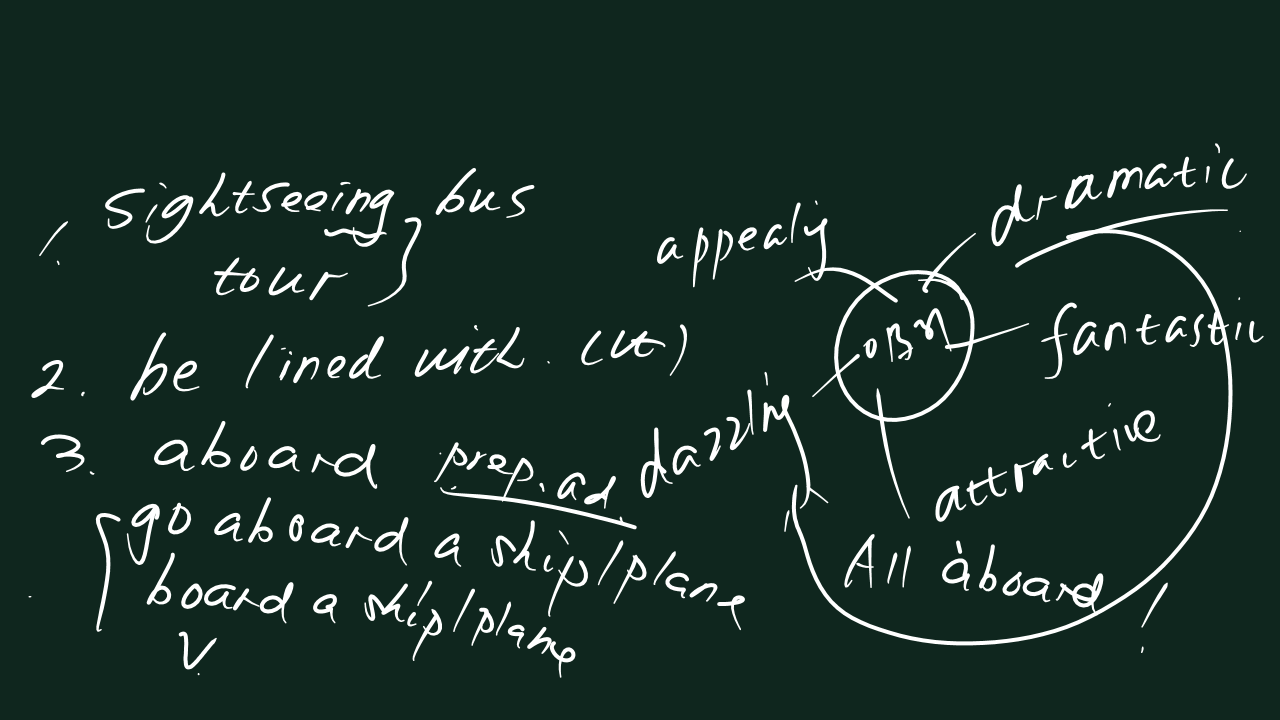 1. sightseeing bus
tour
2. be lined with. (vt)
3. aboard prep. ad.
go aboard a ship/plane
board a ship/plane
V.
appealing
dramatic
fantastic
dazzling
attractive
All aboard!